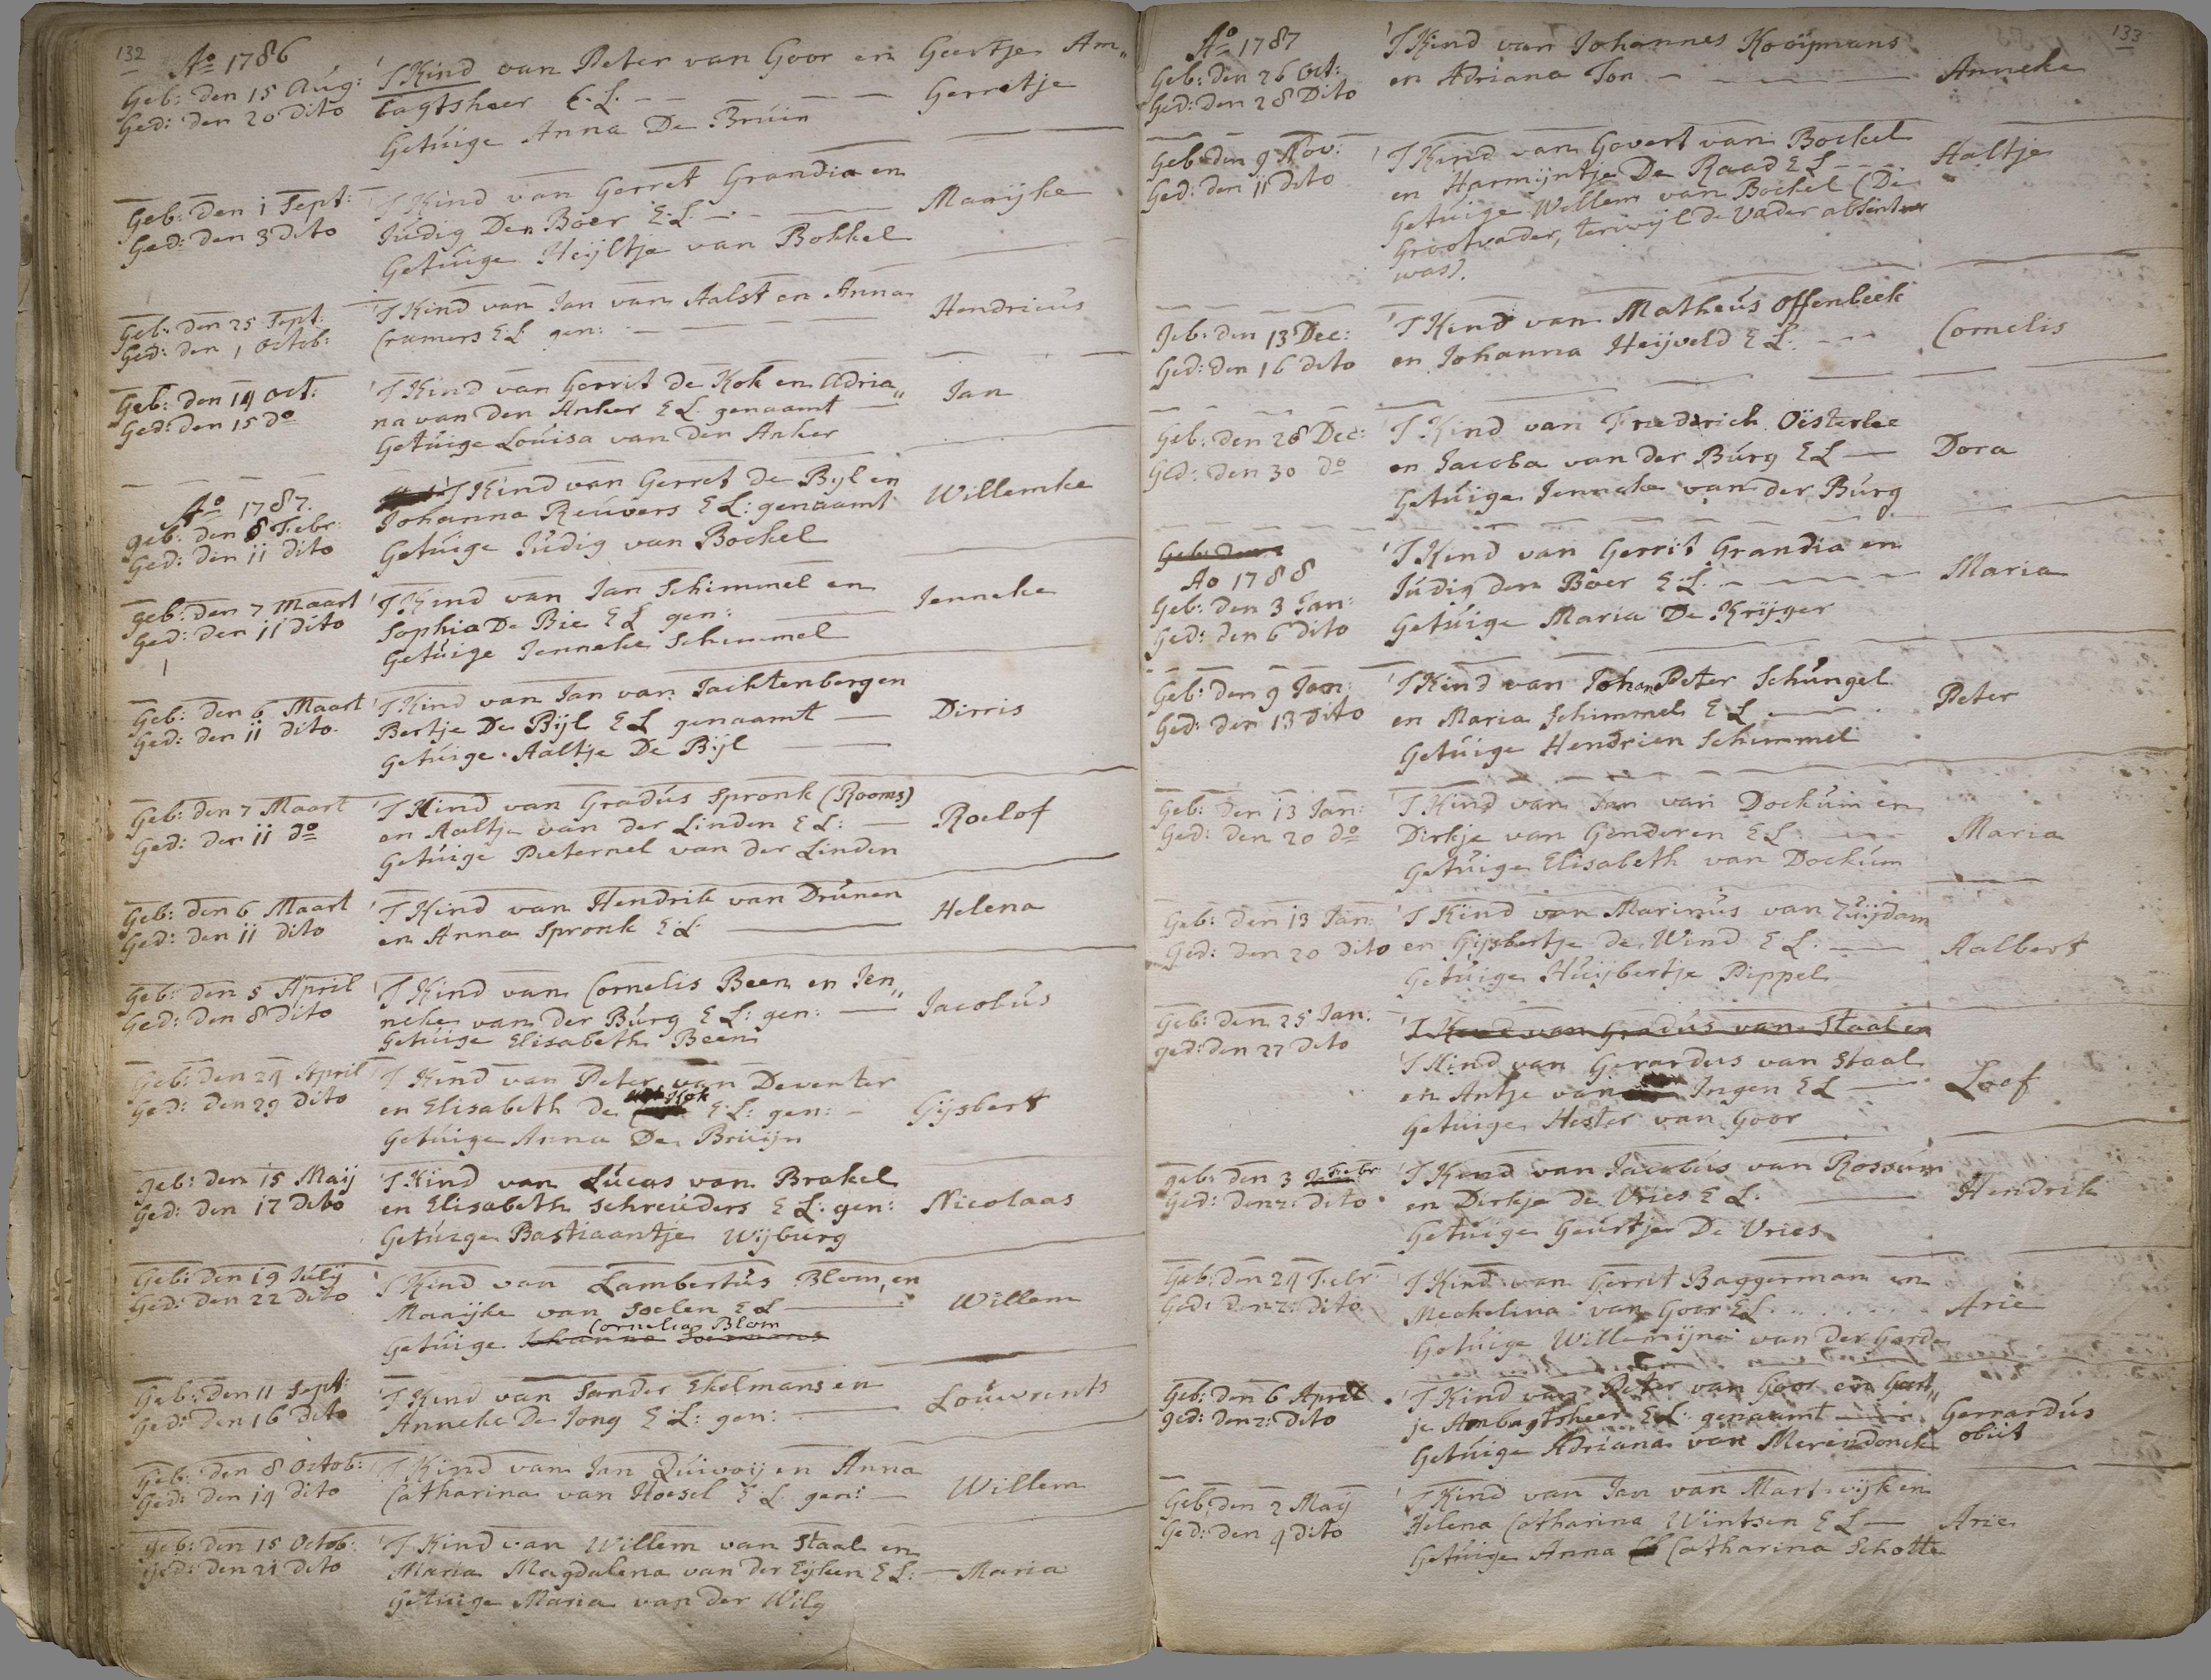 132
Ao 1786
Geb: den 15 Aug: 'T Kind van Peter van Goor en Geertje Am„
Ged: den 20 dito bagtsheer E.L. — — — Gerretje
Getúige Anna De Brúin
Geb: den 1 Sept: 'T Kind van Gerret Grandia en
Ged: den 3 dito Júdig Den Boer E:L: — — Maaijke
Getúige Heijltje van Bokkel
Geb: den 25 Sept: 'T Kind van Jan van Aalst en Anna
Ged: den 1 Octob: Cramers E:L: gen: — Hendricus
Geb: den 14 Oct: 'T Kind van Gerrit de Kok en Adria„
Ged: den 15 do na van den Anker E L. genaamt — Jan
Getúige Loúisa van den Anker
Ao 1787.
geb: den 8 Febr: 'T Kind van Gerret de Byl en
Ged: den 11 dito Johanna Reúvers E L: genaamt Willemke
Getúige Júdig van Bockel
geb: den 7 Maart 'T Kind van Jan Schimmel en
Ged: den 11 dito Sophia De Bie E L gen: — Jenneke
Getúige Jenneke Schimmel
Geb: den 6 Maart 'T Kind van Jan van Tachtenbergen
Ged: den 11 dito. Bertje De Bijl E L genaamt — Dirris
Getúige Aaltje De Bijl
Geb: den 7 Maart 'T Kind van Gradús Spronk (Rooms)
Ged: den 11 do en Aaltje van der Linden E L: — Roelof
Getúige Pieternel van der Linden
Geb: den 6 Maart 'T Kind van Hendrik van Drúnen
Ged: den 11 dito en Anna Spronk E:L. — Helena
Geb: den 5 April 'T Kind van Cornelis Been en Jen„
Ged: den 8 dito neke van der Búrg E L: gen: — Jacobús
Getúige Elisabeth Been
Geb: den 24 April 'T Kind van Peter van Deventer
Ged: den 29 dito en Elisabeth de Kok E:L: gen: — Gijsbert
Getúige Anna De Brúijn
geb: den 15 Maij 'T Kind van Lúcas van Brakel
Ged: den 17 dito en Elisabeth Schreúders E L: gen: Nicolaas
Getúige Bastiaantje Wijbúrg
Geb: den 19 Júlij 'T Kind van Lambertús Blom, en
Ged: den 22 dito Maaijke van Soelen E L — Willem
Cornelia Blom
Getúige Johanna
Geb: den 11 Sept: 'T Kind van Sander Ekelmans en
Ged: den 16 dito Anneke De Jong E:L: gen: — Loúwrents
Geb: den 8 Octob: 'T Kind van Jan Qúivoij en Anna
Ged: den 14 dito Catharina van Hoesel E:L: gen: — Willem
Geb: den 15 Octob: 'T Kind van Willem van Staal en
Ged: den 21 dito Maria Magdalena van der Eijken E L: — Maria
Getúige Maria van der Wilg
133
Ao 1787
Geb: den 26 Oct: 'T Kind van Johannes Kooijmans
Ged: den 28 Dito en Adriana Ton — — — Anneke
Geb: den 9 Nov: 'T Kind van Govert van Bockel
Ged: den 11 dito en Harmijntje De Raad E L — Haltje
Getúige Willem van Bockel (De
Grootvader, terwijl de Vader absent
was).
Geb: den 13 Dec: 'T Kind van Matheús Offenbeek
Ged: den 16 dito en Johanna Heijveld E L. — Cornelis
Geb: den 28 Dec: 'T Kind van Frederich Oisterlee
Ged: den 30 do en Jacoba van der Búrg E L — Dora
Getúige Jenneke van der Búrg
Geb: den
Ao 1788 'T Kind van Gerrit Grandia en
Geb: den 3 Jan: Júdig den Boer E:L. — Maria
Ged: den 6 dito Getúige Maria De Krijger
Geb: den 9 Jan: 'T Kind van Johan Peter Schúngel
Ged: den 13 dito en Maria Schimmel E L — Peter
Getúige Hendrien Schimmel
Geb: den 13 Jan: 'T Kind van Jan van Dockúm en
Ged: den 20 do Dirkje van Genderen E L: — Maria
Getúige Elisabeth van Dockúm
Geb: den 13 Jan: 'T Kind van Marinús van Zúijdam
Ged: den 20 dito en Gijsbertje de Wind E L: — Aalbert
Getúige Húijbertje Pippel
Geb: den 25 Jan: 'T Kind van Gradús van Staal en
ged: den 27 dito 'T Kind van Gerardus van Staal
en Antje van Ingen E L — Loef
Getúige Hester van Goor
geb: den 3 Febr: 'T Kind van Jacobús van Rossúm
Ged: den z: dito en Dirkje de Vries E L. — Hendrik
Getúige Geúrtje De Vries
Geb: den 24 Febr: 'T Kind van Gerrit Baggerman en
Ged: den z: dito Mechelina van Goor E L . . . . Arie
Getúige Willemijna van der Garde
Geb: den 6 April 'T Kind van Peter van Goor en Geert„
ged: den z: Dito je Ambagtsheer E L: genaamt — Gerrardús
Getúige Adriana van Merendonck obiit
Geb: den 2 Maij 'T Kind van Jan van Martwijk en
Ged: den 4 dito Helena Catharina Wintsen E L — Arie
Getúige Anna Catharina Schotte